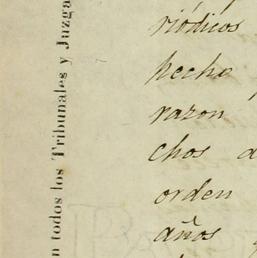 n todos los Tribunales y Juzga
riódicos
hecho
razon
chos
orden
años